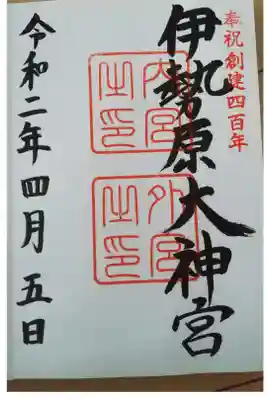 奉祝創建四百年
伊勢原大神宮
内宮
之印
外宮
之印
令和二年四月五日